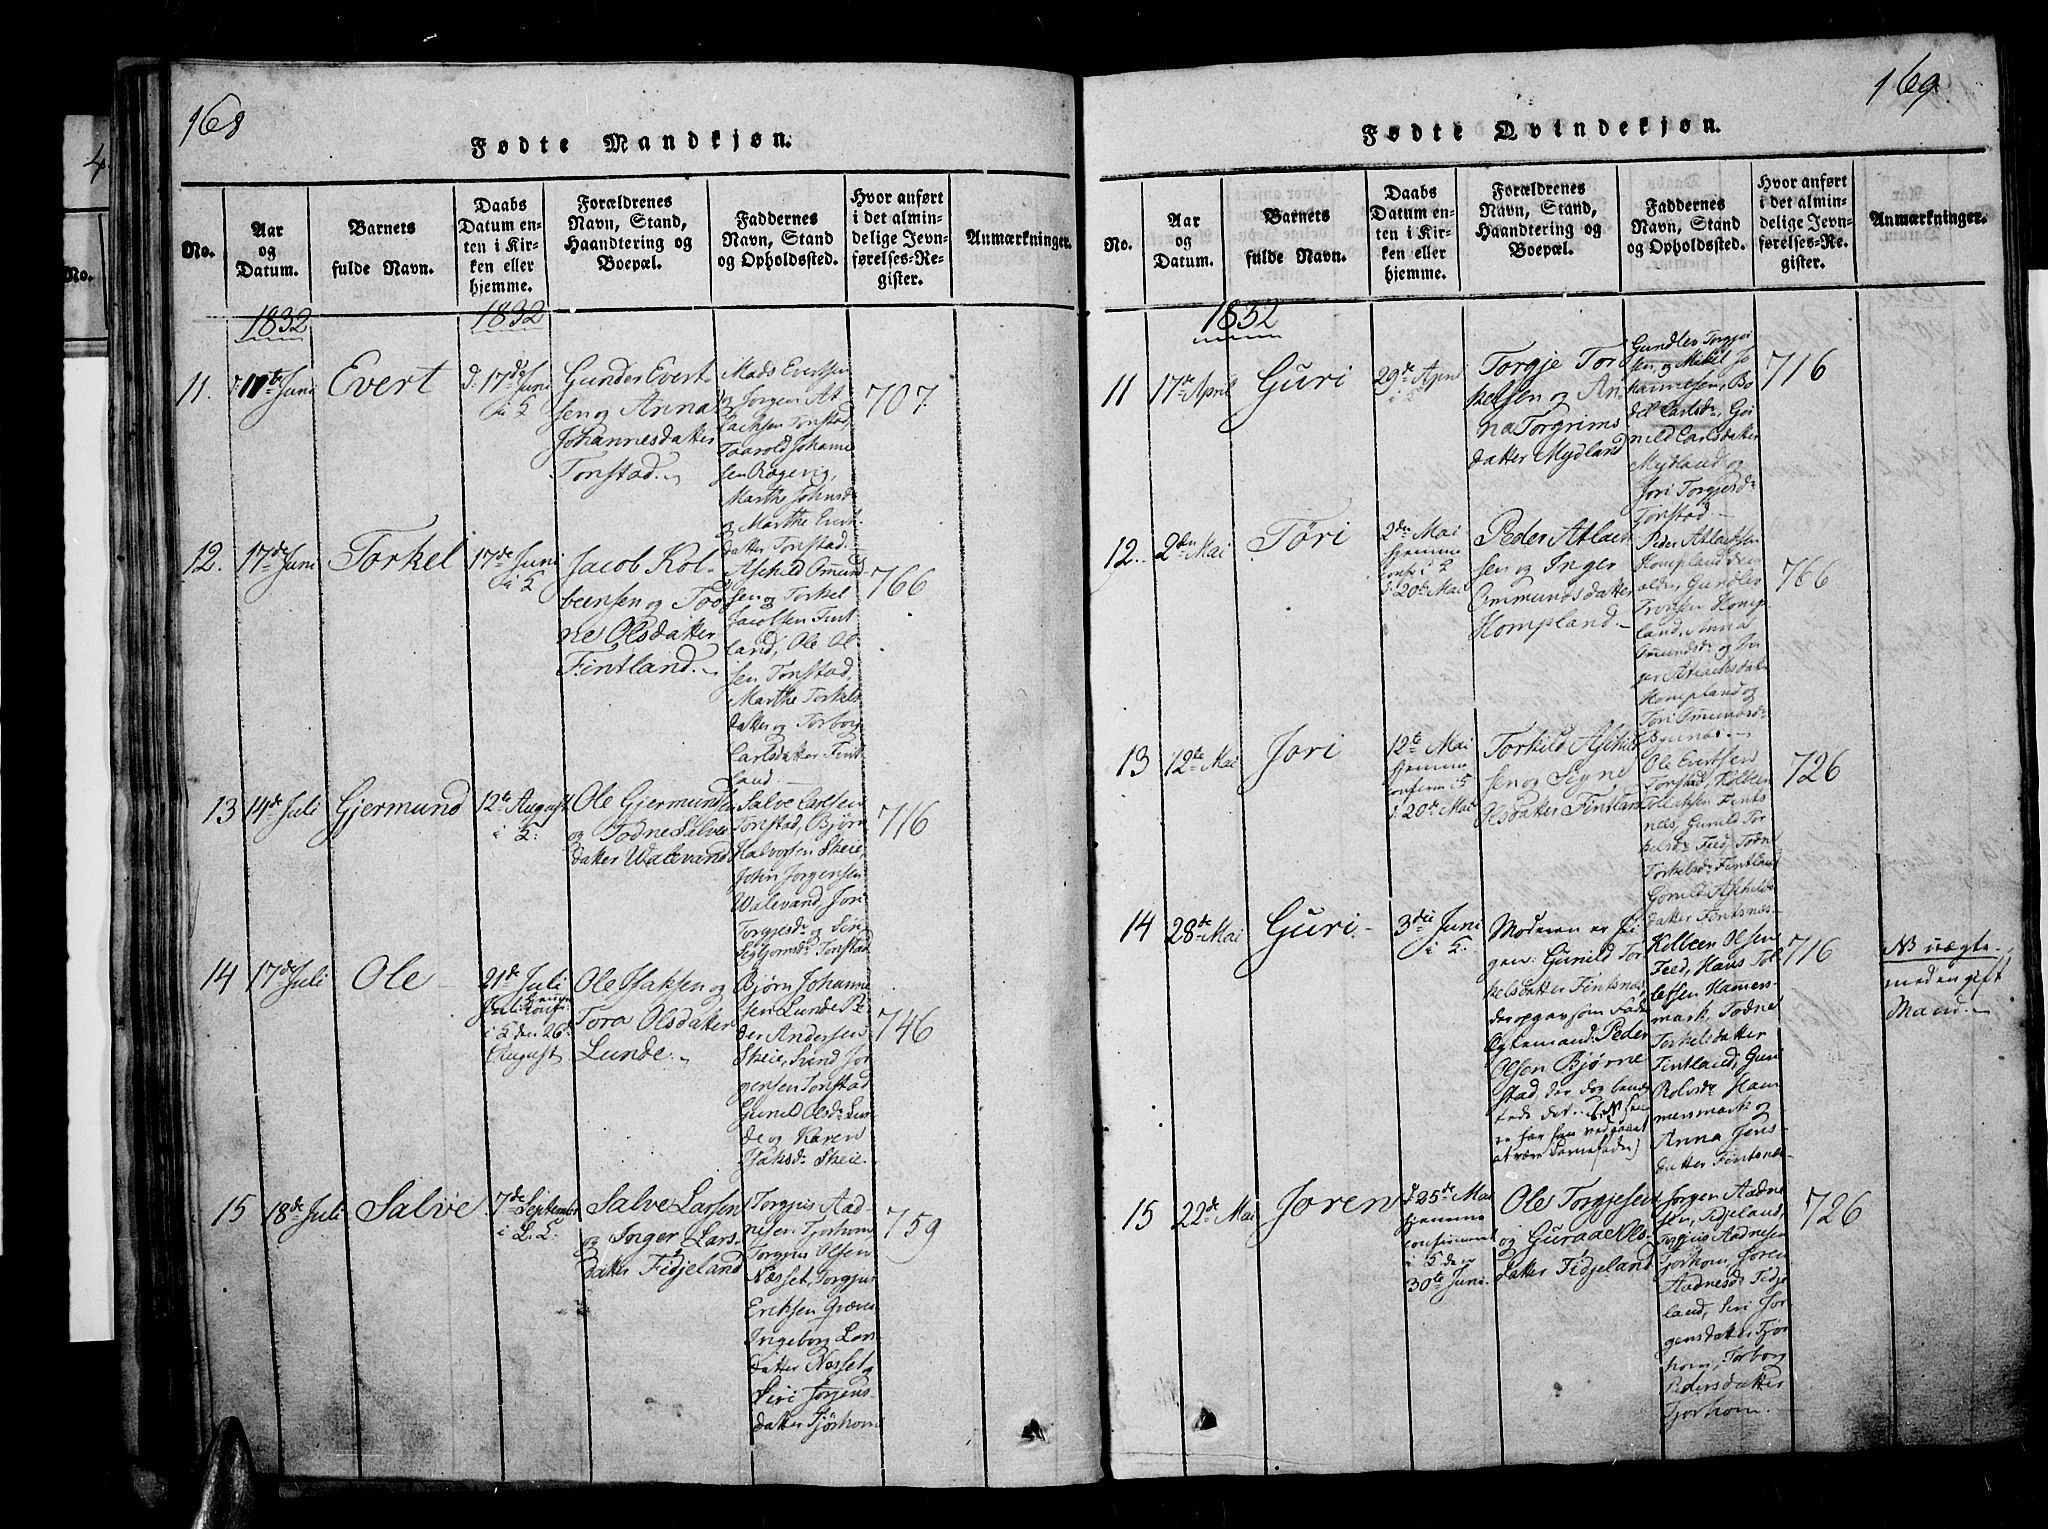 168
Fødte Mandkjøn.
No.
Aar
og
Datum.
Barnets
fulde Navn.
Daabs
Datum en-
ten i Kir-
ken eller
hjemme.
Forældrenes
Navn, Stand,
Haandtering og
Boepæl.
Faddernes
Navn, Stand
og Opholdssted.
Hvor anført
i det almin-
delige Jevn-
førelses-Re-
gister.
Anmærkninger.
1832
1832
11.
11te Juni
Evert
d: 17de Juni
i K
Gunder Evert-
sen og Anna
Johannesdatter
Tonstad.
Mads Evertsen
og Jørgen At-
lachsen Tonstad,
Taarold Johanne
sen Røgevig,
Marthe Johnsd:
og Marthe Evert-
datter Tonstad.
707
12.
17de Juni
Torkel
17de Juni
i K
Jacob Kol-
beensen og Tod
ne Olsdatter
Fintland.
Aschild Omund-
sen og Torkel
Jacobsen Fint
land, Ole Ol-
sen Tonstad,
Marthe Torkels
datter og Torborg
Carlsdatter Fint-
land
766
13
14de Juli
Gjermund
12te August
i K.
Ole Gjermunds
og Todne Salve
datter Walevand
Salve Carlsen
Tonstad, Bjørn
Halvorsen Skeie,
John Jørgensen
Walevand, Jori
Torgjesdr og Siri
Sigbjørnsdr Tonstad
716
14
17de Juli
Ole
21de Juli
i K den 26d
August
Ole Isaksen og
Tora Olsdatter
Lunde.
Bjørn Johanne
sen Lunde Pe-
der Andersen
Skeie, Svend Jør
gensen Tonstad
Gunild Olsdr Lun-
de og Karen
Isaksdr Skeie.
746
15
18de Juli
Salve
7de September
i L. K.
Salve Larsen
og Inger Lars-
datter Fidjeland
Torgjus Aad-
nesen Tjorhom
Torgjus Olsen
Næsset, Torgjus
Eriksen Græve
Ingeborg Lars
datter Næsset og
Siri Jørgens-
datter Tjørhom
759
169.
Fødte Qvindekjøn.
No.
Aar
og
Datum.
Barnets
fulde Navn.
Daabs
Datum en-
ten i Kir-
ken eller
hjemme.
Forældrenes
Navn, Stand,
Haandtering og
Boepæl.
Faddernes
Navn, Stand
og Opholdssted.
Hvor anført
i det almin-
delige Jevn-
førelses-Re-
gister.
Anmærkninger.
1832
11
17de April
Guri
29de April
i K
Torgje Tor
kelsen og An-
na Torgrims
datter Mydland
Gundler Torgju
sen, og Mikel Jo
hannesen, Bo
del Carlsdr, Gu
nild Carlsdatter
Mydland og
Jori Torgjesdr
Tonstad.
716
12.
2den Mai
Töri
2den Mai
hjemme
conf: i K
d. 20de Mai
Peder Atlach
sen og Inger
Ommundsdatter
Hompland.
Peder Atlachsen
Hompland den
ældre, Gundler
Tronsen Homp
land, Anna
Omundsdr og In
ger Atlachsdatter
Hompland og
Tori Omundsdr
766
13
12te Mai
Jori
12te Mai
hjemme
conferm: i K
d: 20de Mai
Torkild Aschild
sen og Signe
Olsdatter Fintland
Ole Evertsen
Tonstad, Kolbeen
Ollachsen Fints
næs, Gunild Tor
kelsdr Fied, Todne
Torkelsdr Fintland
Gunild Aschilds
datter Fintsnæs
726
14
28de Mai
Guri.
3die Juni
i K.
Moderen er Pi-
gen: Gunild Tor
kelsdatter Fintsnæs,
der opgav som Fader
Egtemand: Peder
Olsen Bjørne
stad, der dog benæg
tede det.
at være Barnefader)
Kolbeen Olsen
Fied, Hans Tol
lefsen Hamer-
mark, Todne
Torkelsdatter
Fintland, Gun
Rolsdr Ham
mersmark og
Anna Jens-
datter Fintsnæs
716
NB uægte,
med en gift
Mand.
15
22de Mai
Joren
d 25de Mai
hjemme
confirmeret
i K den
30te Juni.
Ole Torgjesen
og Guraae Ols-
datter Fidjeland
Jørgen Aadne
sen, Fidjeland,
Torgjus Aadnesen
Tjorhom, Joren
Aadnesdr Fidje
land, Siri Jør-
gensdatter Tjør
hom, Torborg
Pedersdatter
Tjorhom.
726